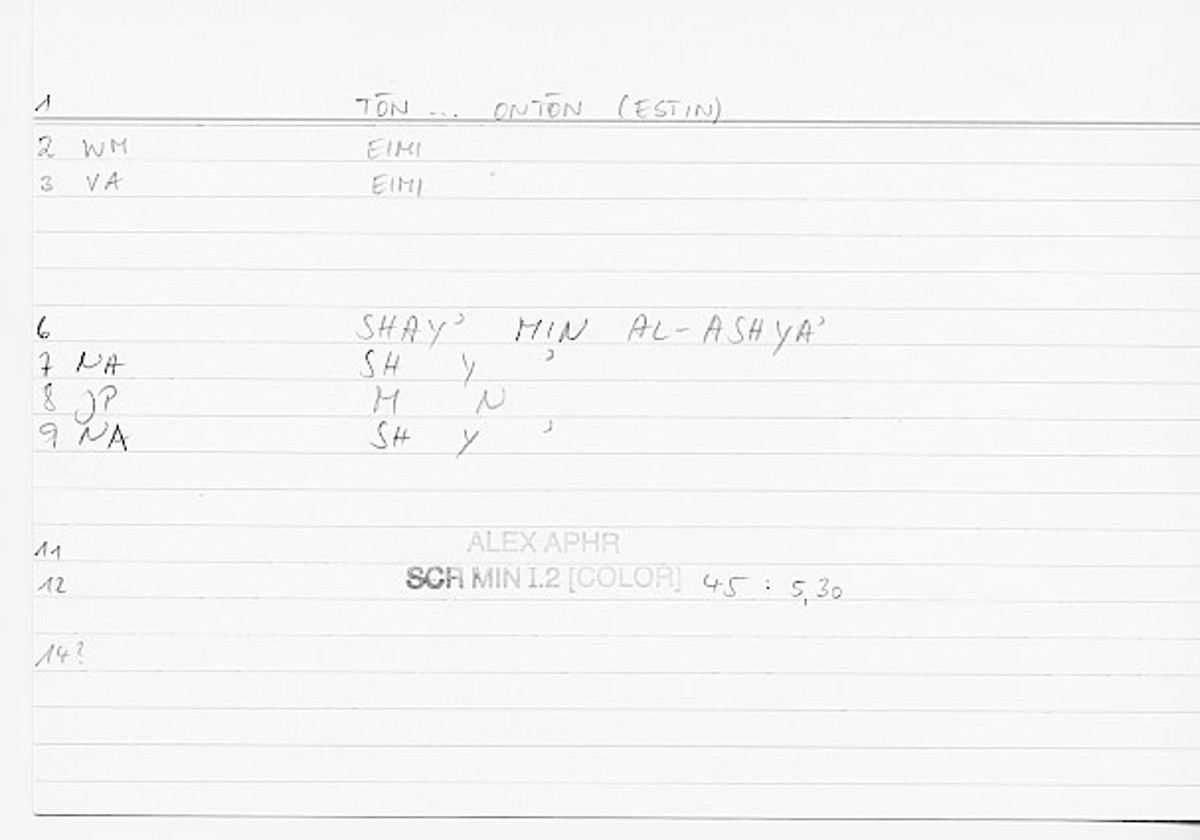 1 TŌN ... ONTŌN (ESTIN)
2 WM EIMI
3 VA EIMI
6 SHAYʾ MIN AL-ASHYAʾ
7 NA SH Y ʾ
8 JP M N
9 NA SH Y ʾ
11 ALEX APHR
12 SCR MIN I.2 [COLOR] 45 : 5,30
14?